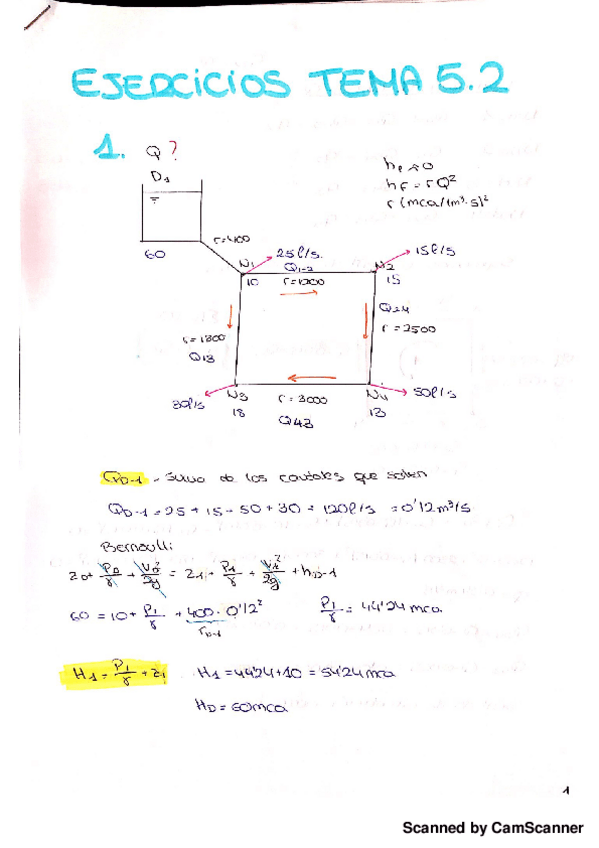 EJERCICIOS TEMA 5.2
1. Q?
D1
hL≈0
hF = rQ²
r (mca/(m³·s)²
r=400
60
N1
25l/s.
Q1-2
r=1200
10
N2
15l/s
15
r=1800
Q13
Q24
r=2500
30l/s
N3
18
r=3000
Q43
N4
13
50l/s
QD-1 = Suma de los caudales que salen
QD-1 = 25 + 15 + 50 + 30 = 120l/s = 0'12m³/s
Bernoulli
z0+ PD/γ + VD²/2g = z1 + P1/γ + V1²/2g + hD-1
60 = 10+ P1/γ + 400 · 0'12²
rD-1
P1/γ = 44'24 mca
H1 = P1/γ + z1
H1 = 44'24+10 = 54'24 mca
HD = 60mca
1
Scanned by CamScanner